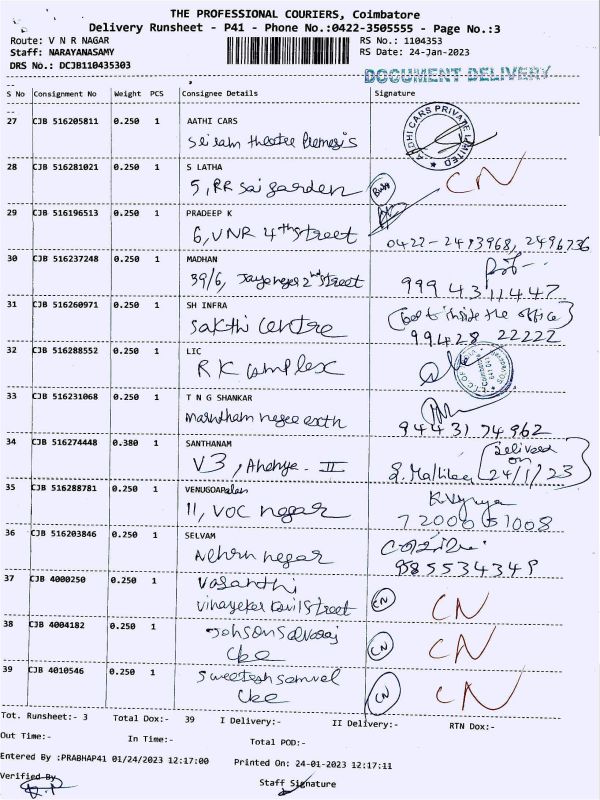 THE PROFESSIONAL COURIERS, Coimbatore
Delivery Runsheet - P41 - Phone No.:0422-3505555 - Page No.:3
Route: V N R NAGAR
RS No.: 1104353
Staff: NARAYANASAMY
RS Date: 24-Jan-2023
DRS No.: DCJB110435303
DOCUMENT DELIVERY
S No Consignment No Weight PCS Consignee Details Signature
27 CJB 516205811 0.250 1 AATHI CARS
Sriram theatre
AADHI CARS PRIVATE LIMITED
28 CJB 516281021 0.250 1 S LATHA
5, RR Sai garden CN
29 CJB 516196513 0.250 1 PRADEEP K
6, VNR 4th Street 0422-2413968, 2496736
30 CJB 516237248 0.250 1 MADHAN
39/6, 2nd Street 999 4311447
31 CJB 516260971 0.250 1 SH INFRA
(got to inside the office)
Sakthi centre 99428 22222
32 CJB 516288552 0.250 1 LIC
RK Complex
33 CJB 516231068 0.250 1 T N G SHANKAR
94431 74962
34 CJB 516274448 0.380 1 SANTHANAM
Delivered on 24/1/23
V3, II
35 CJB 516288781 0.250 1 VENUGOPalan
11, VOC nagar 72000 51008
36 CJB 516203846 0.250 1 SELVAM
Nehru nagar 9585534349
37 CJB 4000250 0.250 1 Vasanthi
Vinayakar Kovil Street CN CN
38 CJB 4004182 0.250 1 Johson Selvaraj
Cbe CN CN
39 CJB 4010546 0.250 1 Sweetesh Samuel
Cbe CN CN
Tot. Runsheet:- 3 Total Dox:- 39 I Delivery:- II Delivery:- RTN Dox:-
Out Time:- In Time:- Total POD:-
Entered By :PRABHAP41 01/24/2023 12:17:00 Printed On: 24-01-2023 12:17:11
Verified By Staff Signature